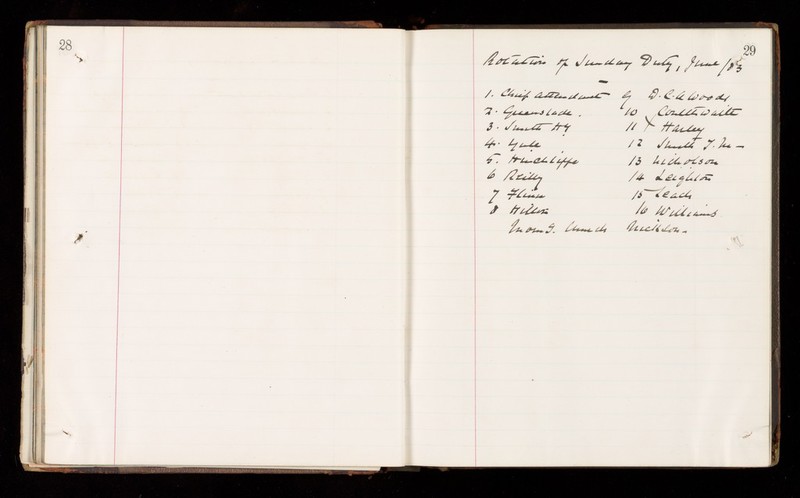 28
29
Rotation of Sunday Duty, June /83
1. Chief Attendant
2. Greenslade.
3. Smith Hy
4. Yule
5. Hinchliffe
6 Reilly
7 Flinn
8 Hilton
9 D. C. A Woods
10 Coulthwaite
11 Harley
12 Smith J. M -
13 Nicholson
14 Leighton
15 Leach
16 Williams
Morng. Church Nickson -